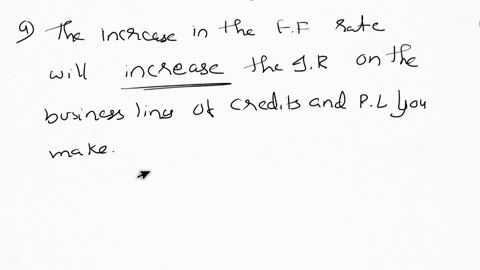 a) The increase in the F.F rate
will increase the I.R on the
business lines of credits and P.L you
make.